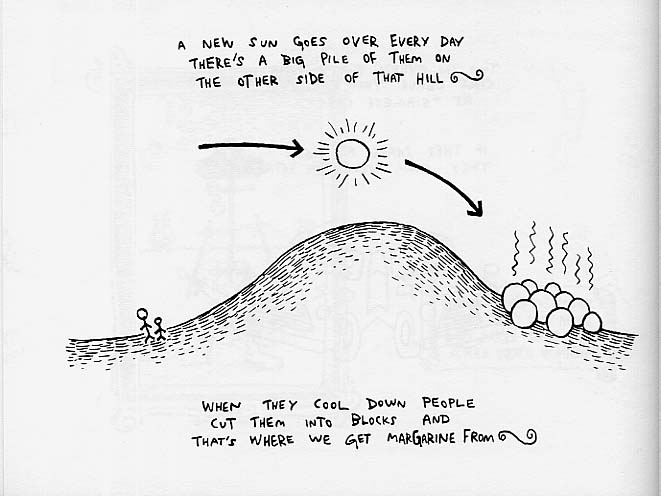 A NEW SUN GOES OVER EVERY DAY
THERE'S A BIG PILE OF THEM ON
THE OTHER SIDE OF THAT HILL
WHEN THEY COOL DOWN PEOPLE
CUT THEM INTO BLOCKS AND
THAT'S WHERE WE GET MARGARINE FROM